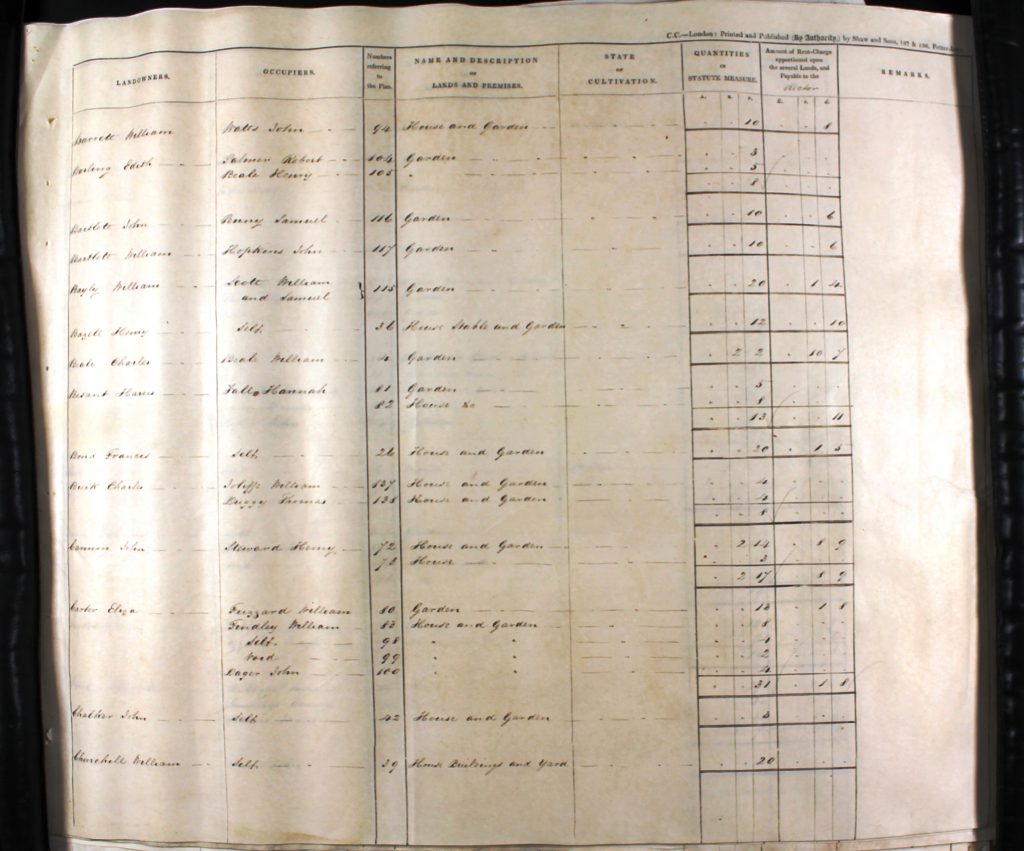 C.C.—London: Printed and Published (By Authority,) by Shaw and Sons, 137 & 138, Fetter
LANDOWNERS. OCCUPIERS. Numbers referring to the Plan. NAME AND DESCRIPTION OF LANDS AND PREMISES. STATE OF CULTIVATION. QUANTITIES IN STATUTE MEASURE. Amount of Rent-Charge apportioned upon the several Lands, and Payable to the Rector REMARKS.
A. R. P. £. s. d.
Barrett William Watts John 94 House and Garden 10 8
Barling Edith Salmon Robert 104 Garden 3
Beale Henry 105 " 5
8
Bartlett John Penny Samuel 116 Garden 10 6
Bartlett William Hopkins John 117 Garden 10 6
Bayly William Scott William 115 Garden 20 1 4
and Samuel
Henry Self 36 House Stable and Garden 12 10
Beale Charles Beale William 4 Garden 2 2 10 7
Besant Hannah 81 Garden 5
82 House &c 8
13 11
Bond Frances Self 26 House and Garden 20 1 5
Charles Joliffe William 137 House and Garden 4
Thomas 138 House and Garden 4
8
Cannon John Steward Henry 72 House and Garden 2 14 8 9
73 House 3
2 17 8 9
Carter Eliza Fuzzard William 80 Garden 13 1 8
Findley William 83 House and Garden 8
Self 98 " " 4
Void 99 " " 2
Dager John 100 " " 4
31 1 8
Chalker John Self 42 House and Garden 3
Churchill William Self 39 House Buildings and Yard 20